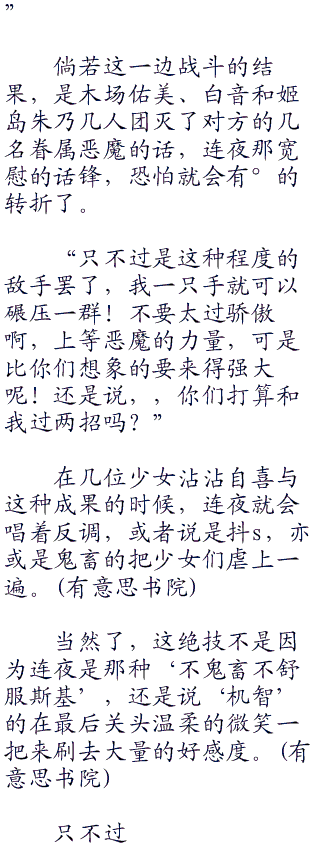 ”
倘若这一边战斗的结
果，是木场佑美、白音和姬
岛朱乃几人团灭了对方的几
名眷属恶魔的话，连夜那宽
慰的话锋，恐怕就会有°的
转折了。
“只不过是这种程度的
敌手罢了，我一只手就可以
碾压一群！不要太过骄傲
啊，上等恶魔的力量，可是
比你们想象的要来得强大
呢！还是说，，你们打算和
我过两招吗？”
在几位少女沾沾自喜与
这种成果的时候，连夜就会
唱着反调，或者说是抖s，亦
或是鬼畜的把少女们虐上一
遍。(有意思书院)
当然了，这绝技不是因
为连夜是那种‘不鬼畜不舒
服斯基’，还是说‘机智’
的在最后关头温柔的微笑一
把来刷去大量的好感度。(有
意思书院)
只不过